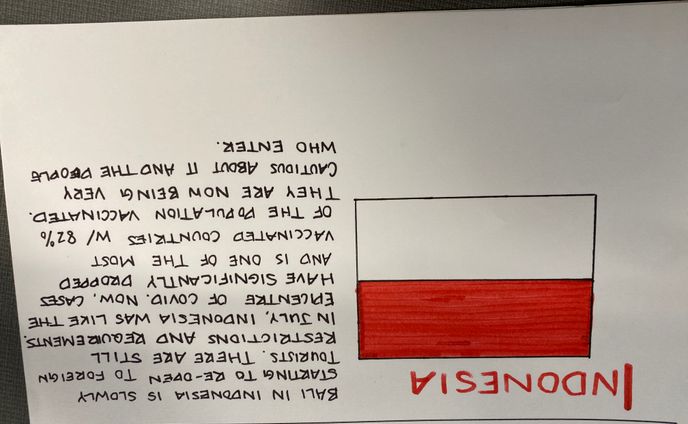 INDONESIA
BALI IN INDONESIA IS SLOWLY
STARTING TO RE-OPEN TO FOREIGN
TOURISTS. THERE ARE STILL
RESTRICTIONS AND REQUIREMENTS.
IN JULY, INDONESIA WAS LIKE THE
EPICENTRE OF COVID. NOW, CASES
HAVE SIGNIFICANTLY DROPPED
AND IS ONE OF THE MOST
VACCINATED COUNTRIES W/ 82%
OF THE POPULATION VACCINATED.
THEY ARE NOW BEING VERY
CAUTIOUS ABOUT IT AND THE PEOPLE
WHO ENTER.